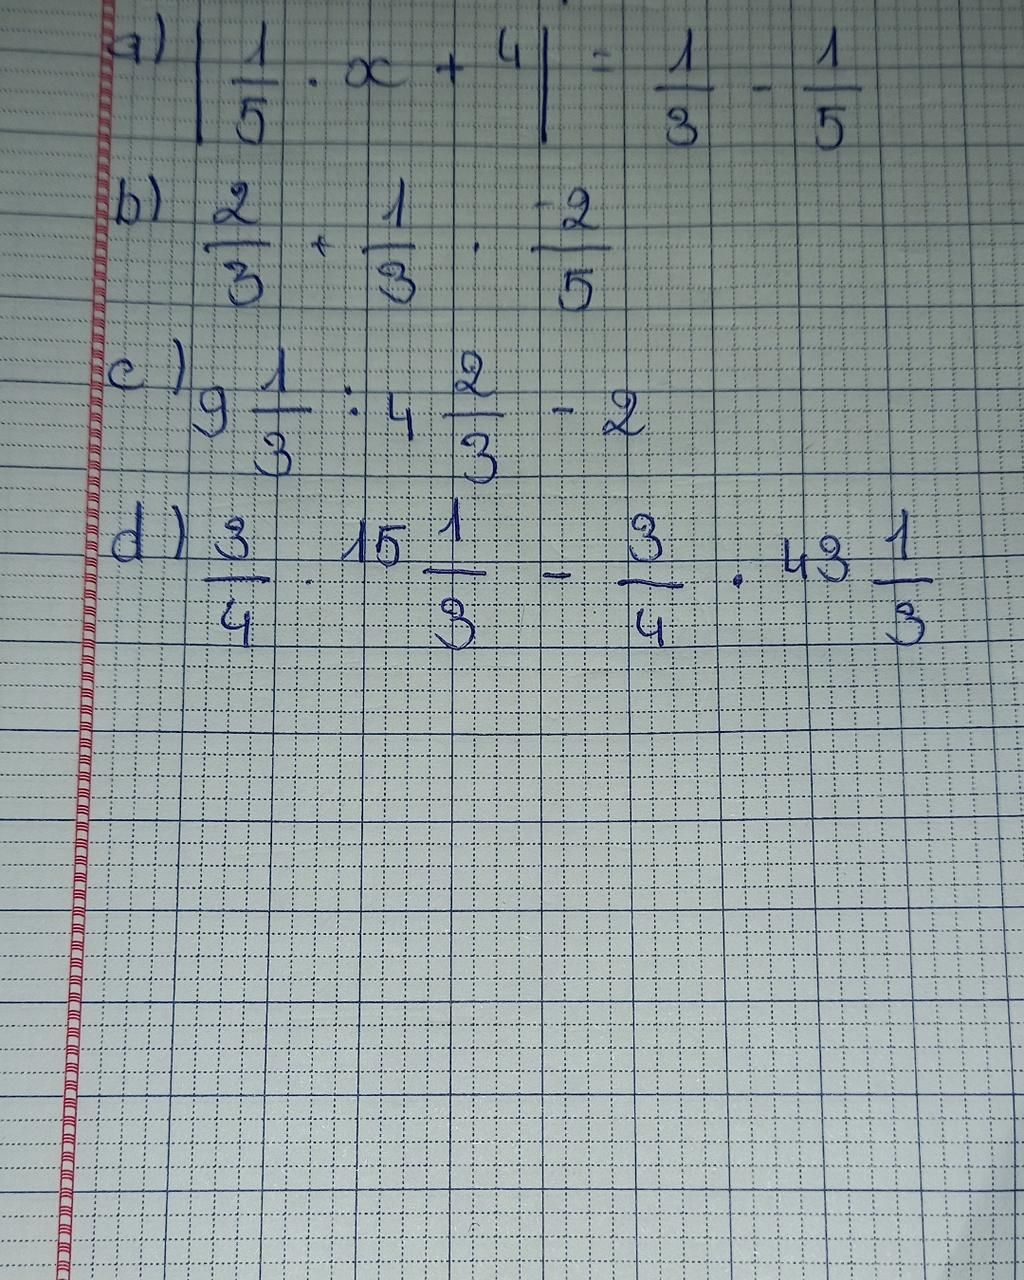 a) |1/5 . x + 4| = 1/3 - 1/5
b) 2/3 + 1/3 . -2/5
c) 9 1/3 : 4 2/3 - 2
d) 3/4 . 15 1/3 - 3/4 . 43 1/3